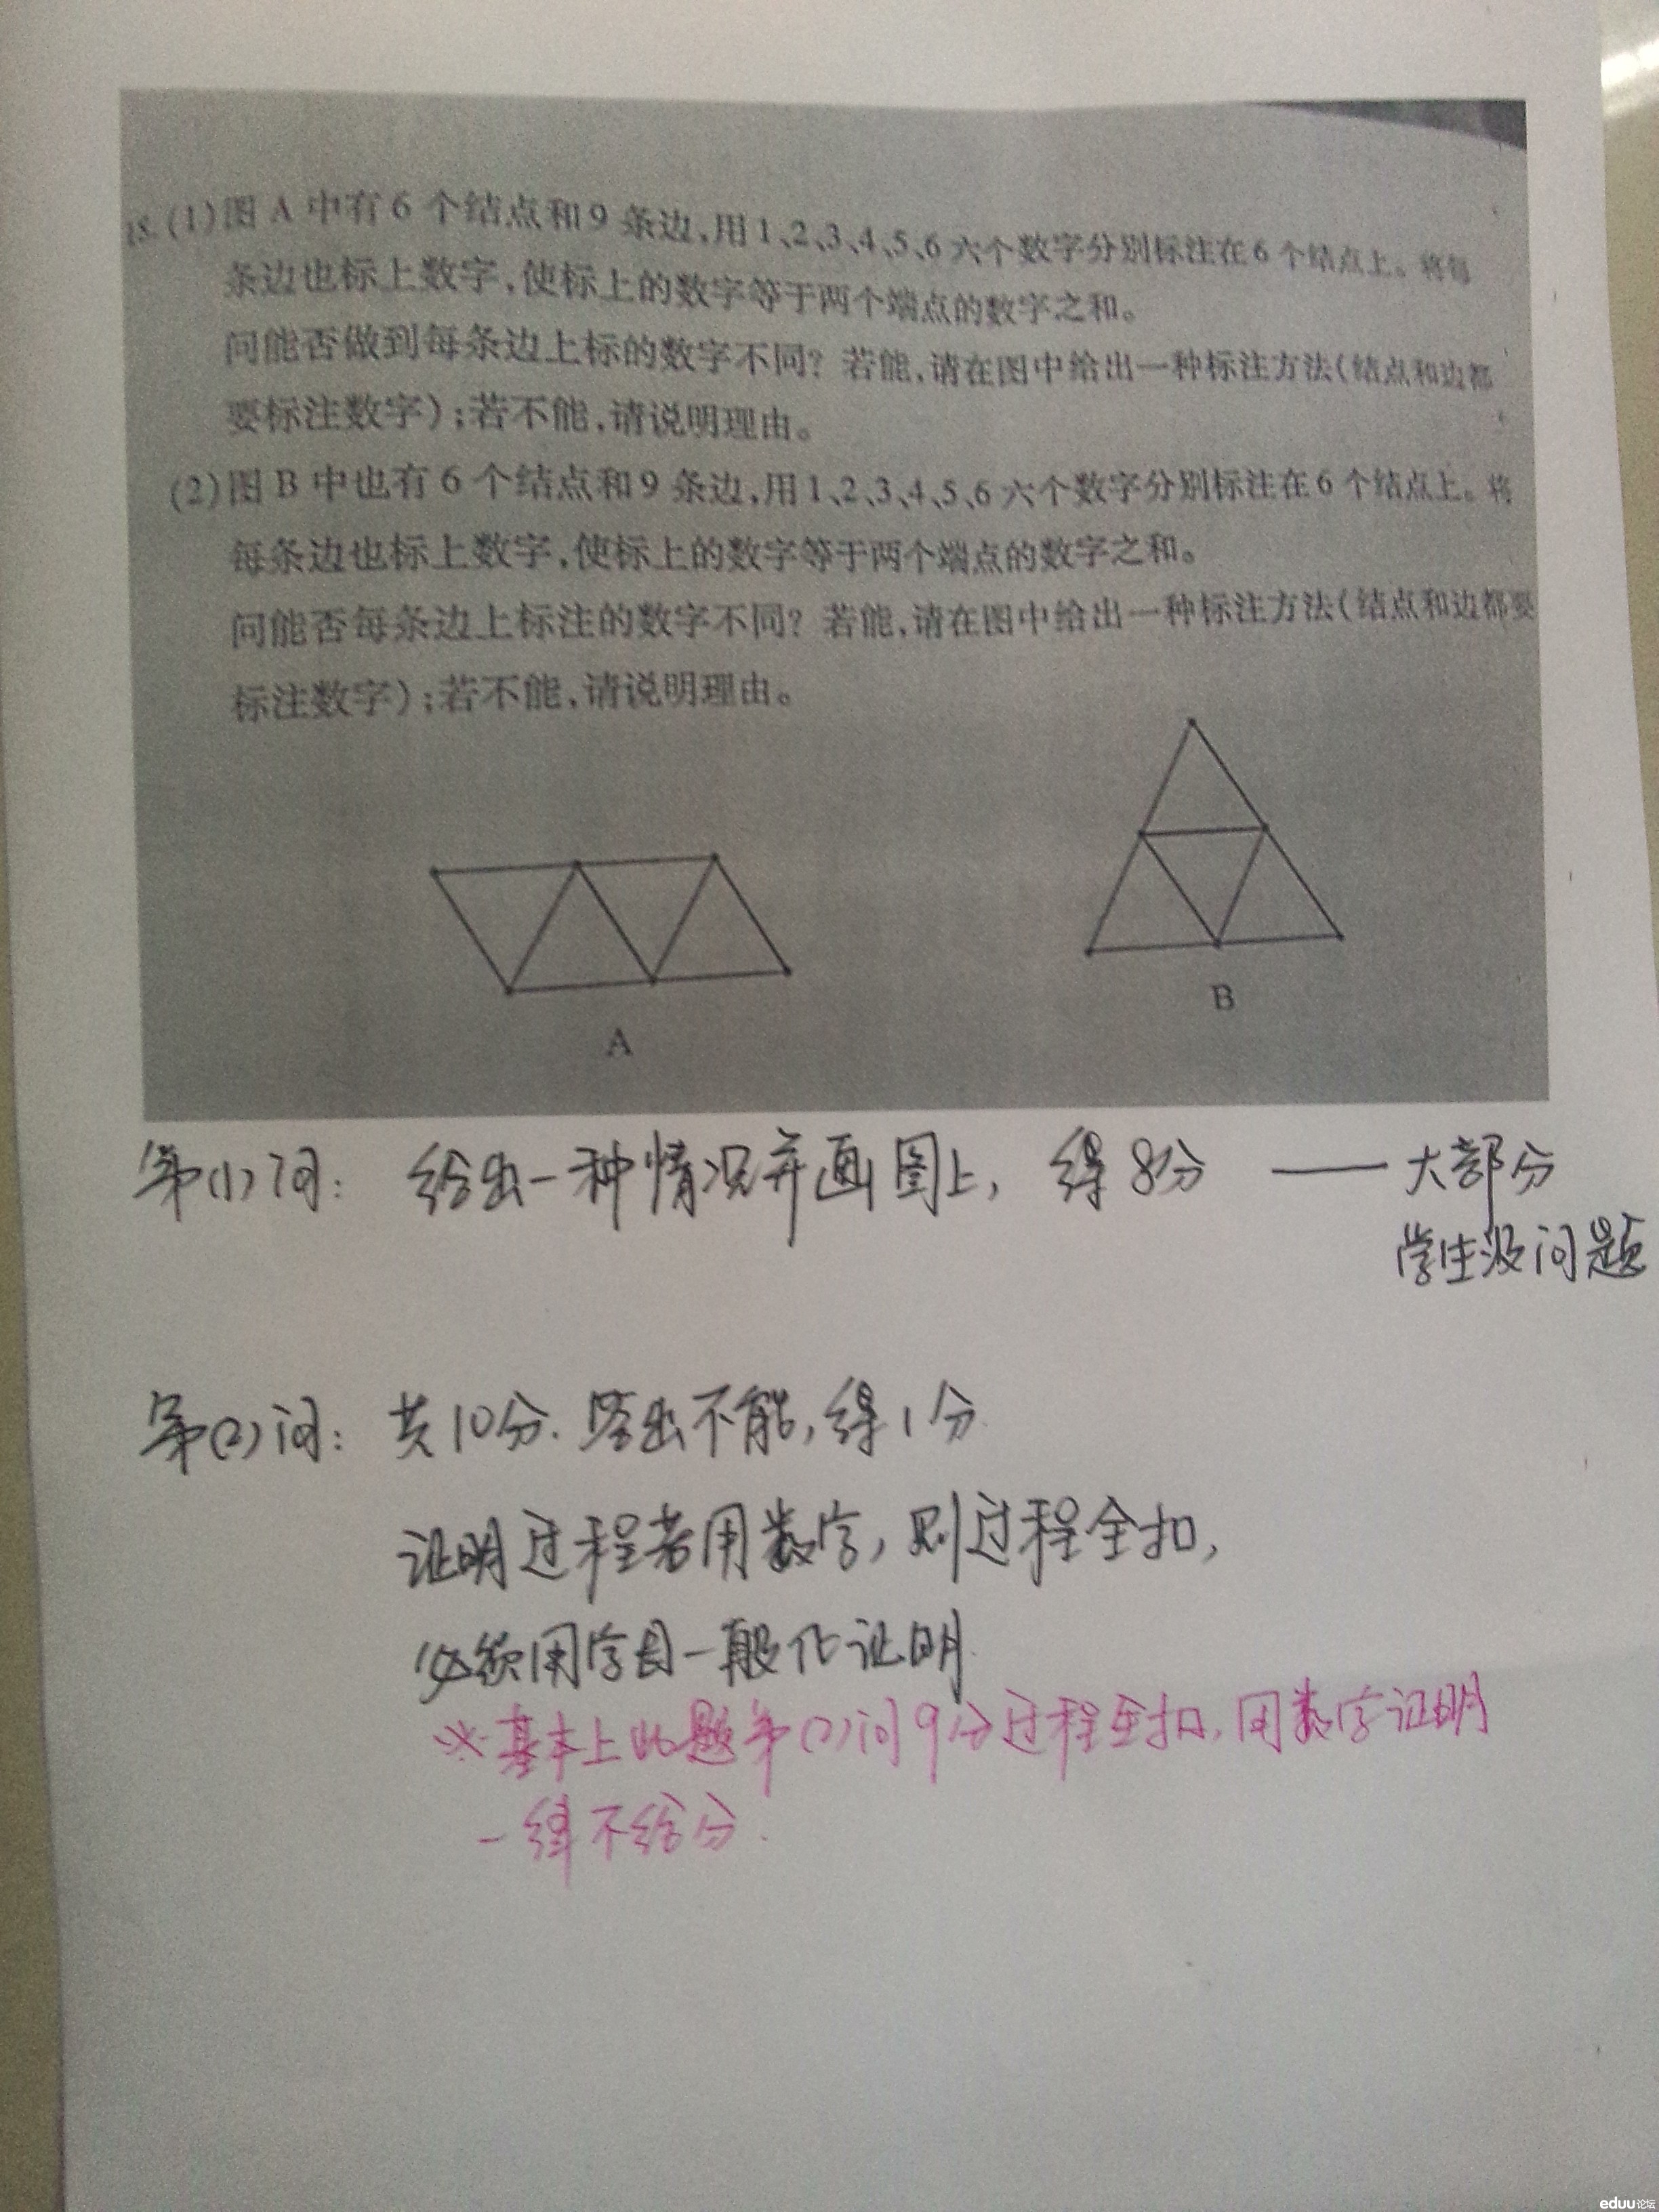 18.(1)图A中有6个结点和9条边,用1、2、3、4、5、6六个数字分别标注在6个结点上。将每
条边也标上数字,使标上的数字等于两个端点的数字之和。
问能否做到每条边上标的数字不同?若能,请在图中给出一种标注方法(结点和边都
要标注数字);若不能,请说明理由。
(2)图B中也有6个结点和9条边,用1、2、3、4、5、6六个数字分别标注在6个结点上。将
每条边也标上数字,使标上的数字等于两个端点的数字之和。
问能否每条边上标注的数字不同?若能,请在图中给出一种标注方法(结点和边都要
标注数字);若不能,请说明理由。
A
B
第(1)问: 给出一种情况并画图上, 得8分 —— 大部分
学生没问题
第(2)问: 共10分. 答出不能,得1分.
证明过程若用数字,则过程全扣,
必须用字母一般化证明.
※基本上此题第(2)问9分过程全扣,用数字证明
一律不给分.
eduu论坛